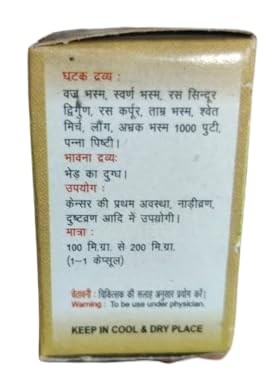 घटक द्रव्य :
वज्र भस्म, स्वर्ण भस्म, रस सिन्दूर
द्विगुण, रस कर्पूर, ताम्र भस्म, श्वेत
मिर्च, लौंग, अभ्रक भस्म 1000 पुटी,
पन्ना पिष्टी।
भावना द्रव्यः
भेड़ का दुग्ध।
उपयोग :
केन्सर की प्रथम अवस्था, नाड़ीव्रण,
दुष्टव्रण आदि में उपयोगी।
मात्रा :
100 मि.ग्रा. से 200 मि.ग्रा.
(1-1 केप्सूल)
चेतावनी : चिकित्सक की सलाह अनुसार प्रयोग करें।
Warning : To be use under physician.
KEEP IN COOL & DRY PLACE